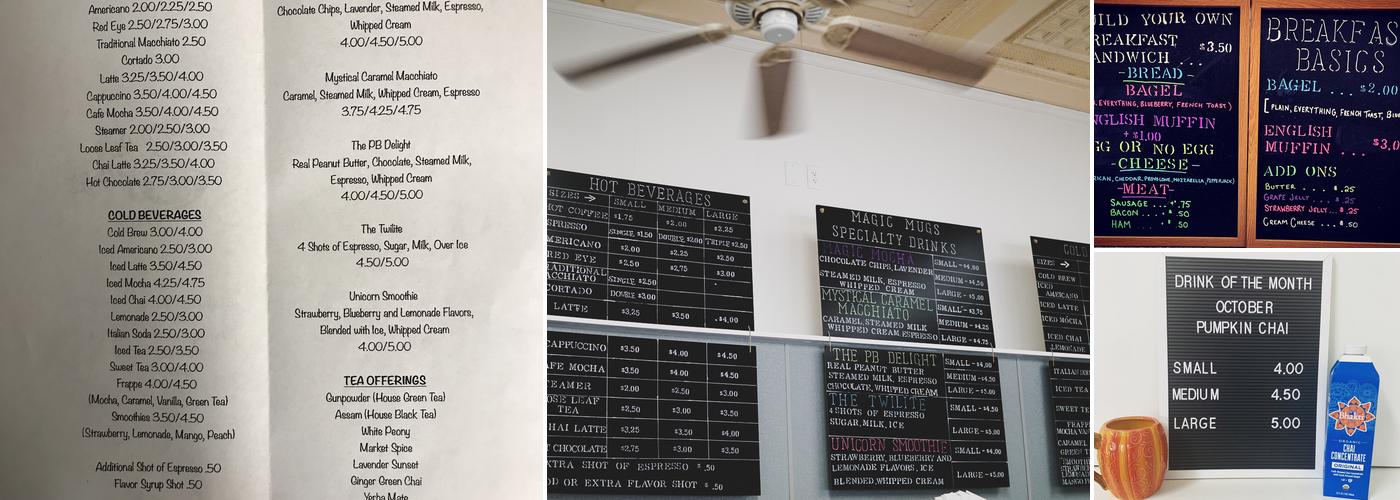 Americano 2.00/2.25/2.50
Red Eye 2.50/2.75/3.00
Traditional Macchiato 2.50
Cortado 3.00
Latte 3.25/3.50/4.00
Cappuccino 3.50/4.00/4.50
Cafe Mocha 3.50/4.00/4.50
Steamer 2.00/2.50/3.00
Loose Leaf Tea 2.50/3.00/3.50
Chai Latte 3.25/3.50/4.00
Hot Chocolate 2.75/3.00/3.50
COLD BEVERAGES
Cold Brew 3.00/4.00
Iced Americano 2.50/3.00
Iced Latte 3.50/4.50
Iced Mocha 4.25/4.75
Iced Chai 4.00/4.50
Lemonade 2.50/3.50
Italian Soda 2.50/3.50
Iced Tea 2.50/3.50
Sweet Tea 3.00/4.00
Frappe 4.00/4.50
(Mocha, Caramel, Vanilla, Green Tea)
Smoothies 3.50/4.50
(Strawberry, Lemonade, Mango, Peach)
Additional Shot of Espresso .50
Flavor Syrup Shot .50
Chocolate Chips, Lavender, Steamed Milk, Espresso,
Whipped Cream
4.00/4.50/5.00
Mystical Caramel Macchiato
Caramel, Steamed Milk, Whipped Cream, Espresso
3.75/4.25/4.75
The PB Delight
Real Peanut Butter, Chocolate, Steamed Milk,
Espresso, Whipped Cream
4.00/4.50/5.00
The Twilite
4 Shots of Espresso, Sugar, Milk, Over Ice
4.50/5.00
Unicorn Smoothie
Strawberry, Blueberry and Lemonade Flavors,
Blended with Ice, Whipped Cream
4.00/5.00
TEA OFFERINGS
Gunpowder (House Green Tea)
Assam (House Black Tea)
White Peony
Market Spice
Lavender Sunset
Ginger Green Chai
Yerba Mate
HOT BEVERAGES
SIZES → SMALL MEDIUM LARGE
HOT COFFEE $1.75 $2.00 $2.25
ESPRESSO SINGLE $1.50 DOUBLE $2.00 TRIPLE $2.50
AMERICANO $2.00 $2.25 $2.50
RED EYE $2.50 $2.75 $3.00
TRADITIONAL
MACCHIATO SINGLE $2.50
CORTADO DOUBLE $3.00
LATTE $3.25 $3.50 $4.00
CAPPUCCINO $3.50 $4.00 $4.50
CAFE MOCHA $3.50 $4.00 $4.50
STEAMER $2.00 $2.50 $3.00
LOOSE LEAF
TEA $2.50 $3.00 $3.50
CHAI LATTE $3.25 $3.50 $4.00
HOT CHOCOLATE $2.75 $3.00 $3.50
EXTRA SHOT OF ESPRESSO $ .50
ADD OR EXTRA FLAVOR SHOT $ .50
MAGIC MUGS
SPECIALTY DRINKS
MAGIC MOCHA
CHOCOLATE CHIPS, LAVENDER
STEAMED MILK, ESPRESSO
WHIPPED CREAM
SMALL - $4.00
MEDIUM - $4.50
LARGE - $5.00
MYSTICAL CARAMEL
MACCHIATO
CARAMEL, STEAMED MILK
WHIPPED CREAM ESPRESSO
SMALL - $3.75
MEDIUM - $4.25
LARGE - $4.75
THE PB DELIGHT
REAL PEANUT BUTTER
STEAMED MILK, ESPRESSO
CHOCOLATE, WHIPPED CREAM
SMALL - $4.00
MEDIUM - $4.50
LARGE - $5.00
THE TWILITE
4 SHOTS OF ESPRESSO
SUGAR, MILK, ICE
SMALL - $4.50
LARGE - $5.00
UNICORN SMOOTHIE
STRAWBERRY, BLUEBERRY AND
LEMONADE FLAVORS, ICE
BLENDED, WHIPPED CREAM
SMALL - $4.00
LARGE - $5.00
COLD
SIZES →
COLD BREW
ICED
AMERICANO
ICED LATTE
ICED MOCHA
ICED CHAI
LEMONADE
ITALIAN
ICED TEA
SWEET TE
FRAPP
MOCHA VAN
CARAMEL
GREEN T
SMOOTHI
UILD YOUR OWN
REAKFAST
ANDWICH ... $3.50
-BREAD-
BAGEL
EVERYTHING, BLUEBERRY, FRENCH TOAST)
NGLISH MUFFIN
+ $1.00
GG OR NO EGG
-CHEESE-
RICAN, CHEDDAR, PROVOLONE, MOZZARELLA, PEPPERJACK)
-MEAT-
SAUSAGE ... + $.75
BACON .... $ .50
HAM .... $ .50
BREAKFAS
BASICS
BAGEL ... $2.00
[PLAIN, EVERYTHING, FRENCH TOAST, BLUE
ENGLISH
MUFFIN ... $3.0
ADD ONS
BUTTER .... $.25
GRAPE JELLY ... $.25
STRAWBERRY JELLY ... $.25
CREAM CHEESE .. $.50
DRINK OF THE MONTH
OCTOBER
PUMPKIN CHAI
SMALL 4.00
MEDIUM 4.50
LARGE 5.00
Bhakti
ORGANIC
CHAI
CONCENTRATE
ORIGINAL